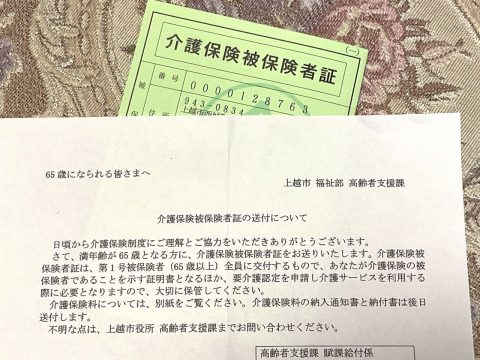 (一)
介護保険被保険者証
番号
0000128763
被
保
住所
943-0834
上越市西城
65歳になられる皆さまへ
上越市 福祉部 高齢者支援課
介護保険被保険者証の送付について
日頃から介護保険制度にご理解とご協力をいただきありがとうございます。
さて、満年齢が65歳となる方に、介護保険被保険者証をお送りいたします。介護保険被保
険者証は、第1号被保険者（65歳以上）全員に交付するもので、あなたが介護保険の被
保険者であることを示す証明書となるほか、要介護認定を申請し介護サービスを利用する
際に必要となりますので、大切に保管してください。
介護保険料については、別紙をご覧ください。介護保険料の納入通知書と納付書は後日
送付します。
不明な点は、上越市役所 高齢者支援課までお問い合わせください。
高齢者支援課 賦課給付係